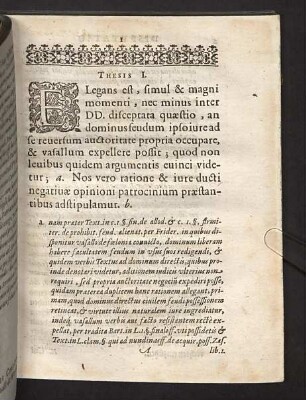 1
THESIS I.
ELegans est, simul & magni
momenti, nec minus inter
DD. disceptata quæstio, an
dominus feudum ipso iure ad
se reversum auctoritate propria occupare,
& vasallum expellere possit; quod non
levibus quidem argumentis evinci vide-
tur; a. Nos vero ratione & iure ducti
negativæ opinioni patrocinium præstan-
tibus adstipulamur. b.
a. nam præter Text. in c. 1 § sin. de alod. & c. 1. §, firmi-
ter. de prohibit. feud. alienat. per Frider. in quibus di-
sponitur vasallo de fœlonia convicto, dominum liberam
habere facultatem feudum in usus suos redigendi, &
quidem verbis Textus ad dominū directis, quibus pro-
inde denotari videtur, administriculum ulterius non re-
quiri, sed propria auctoritate negotiū expediri posse,
quidam præterea duplicem hanc rationem allegant, pri-
mam, quod dominus directus civilem feudi possessionem
retineat, & virtute illius naturalem iure aggrediatur,
indeq; vasallum verbi aut facto resistentem rectè ex-
pellat, per tradita Bart. in L. 1. §
Text. in L. clam. § qui ad nundinas ff. de acquir. poss. Zas.
A lib. 1.